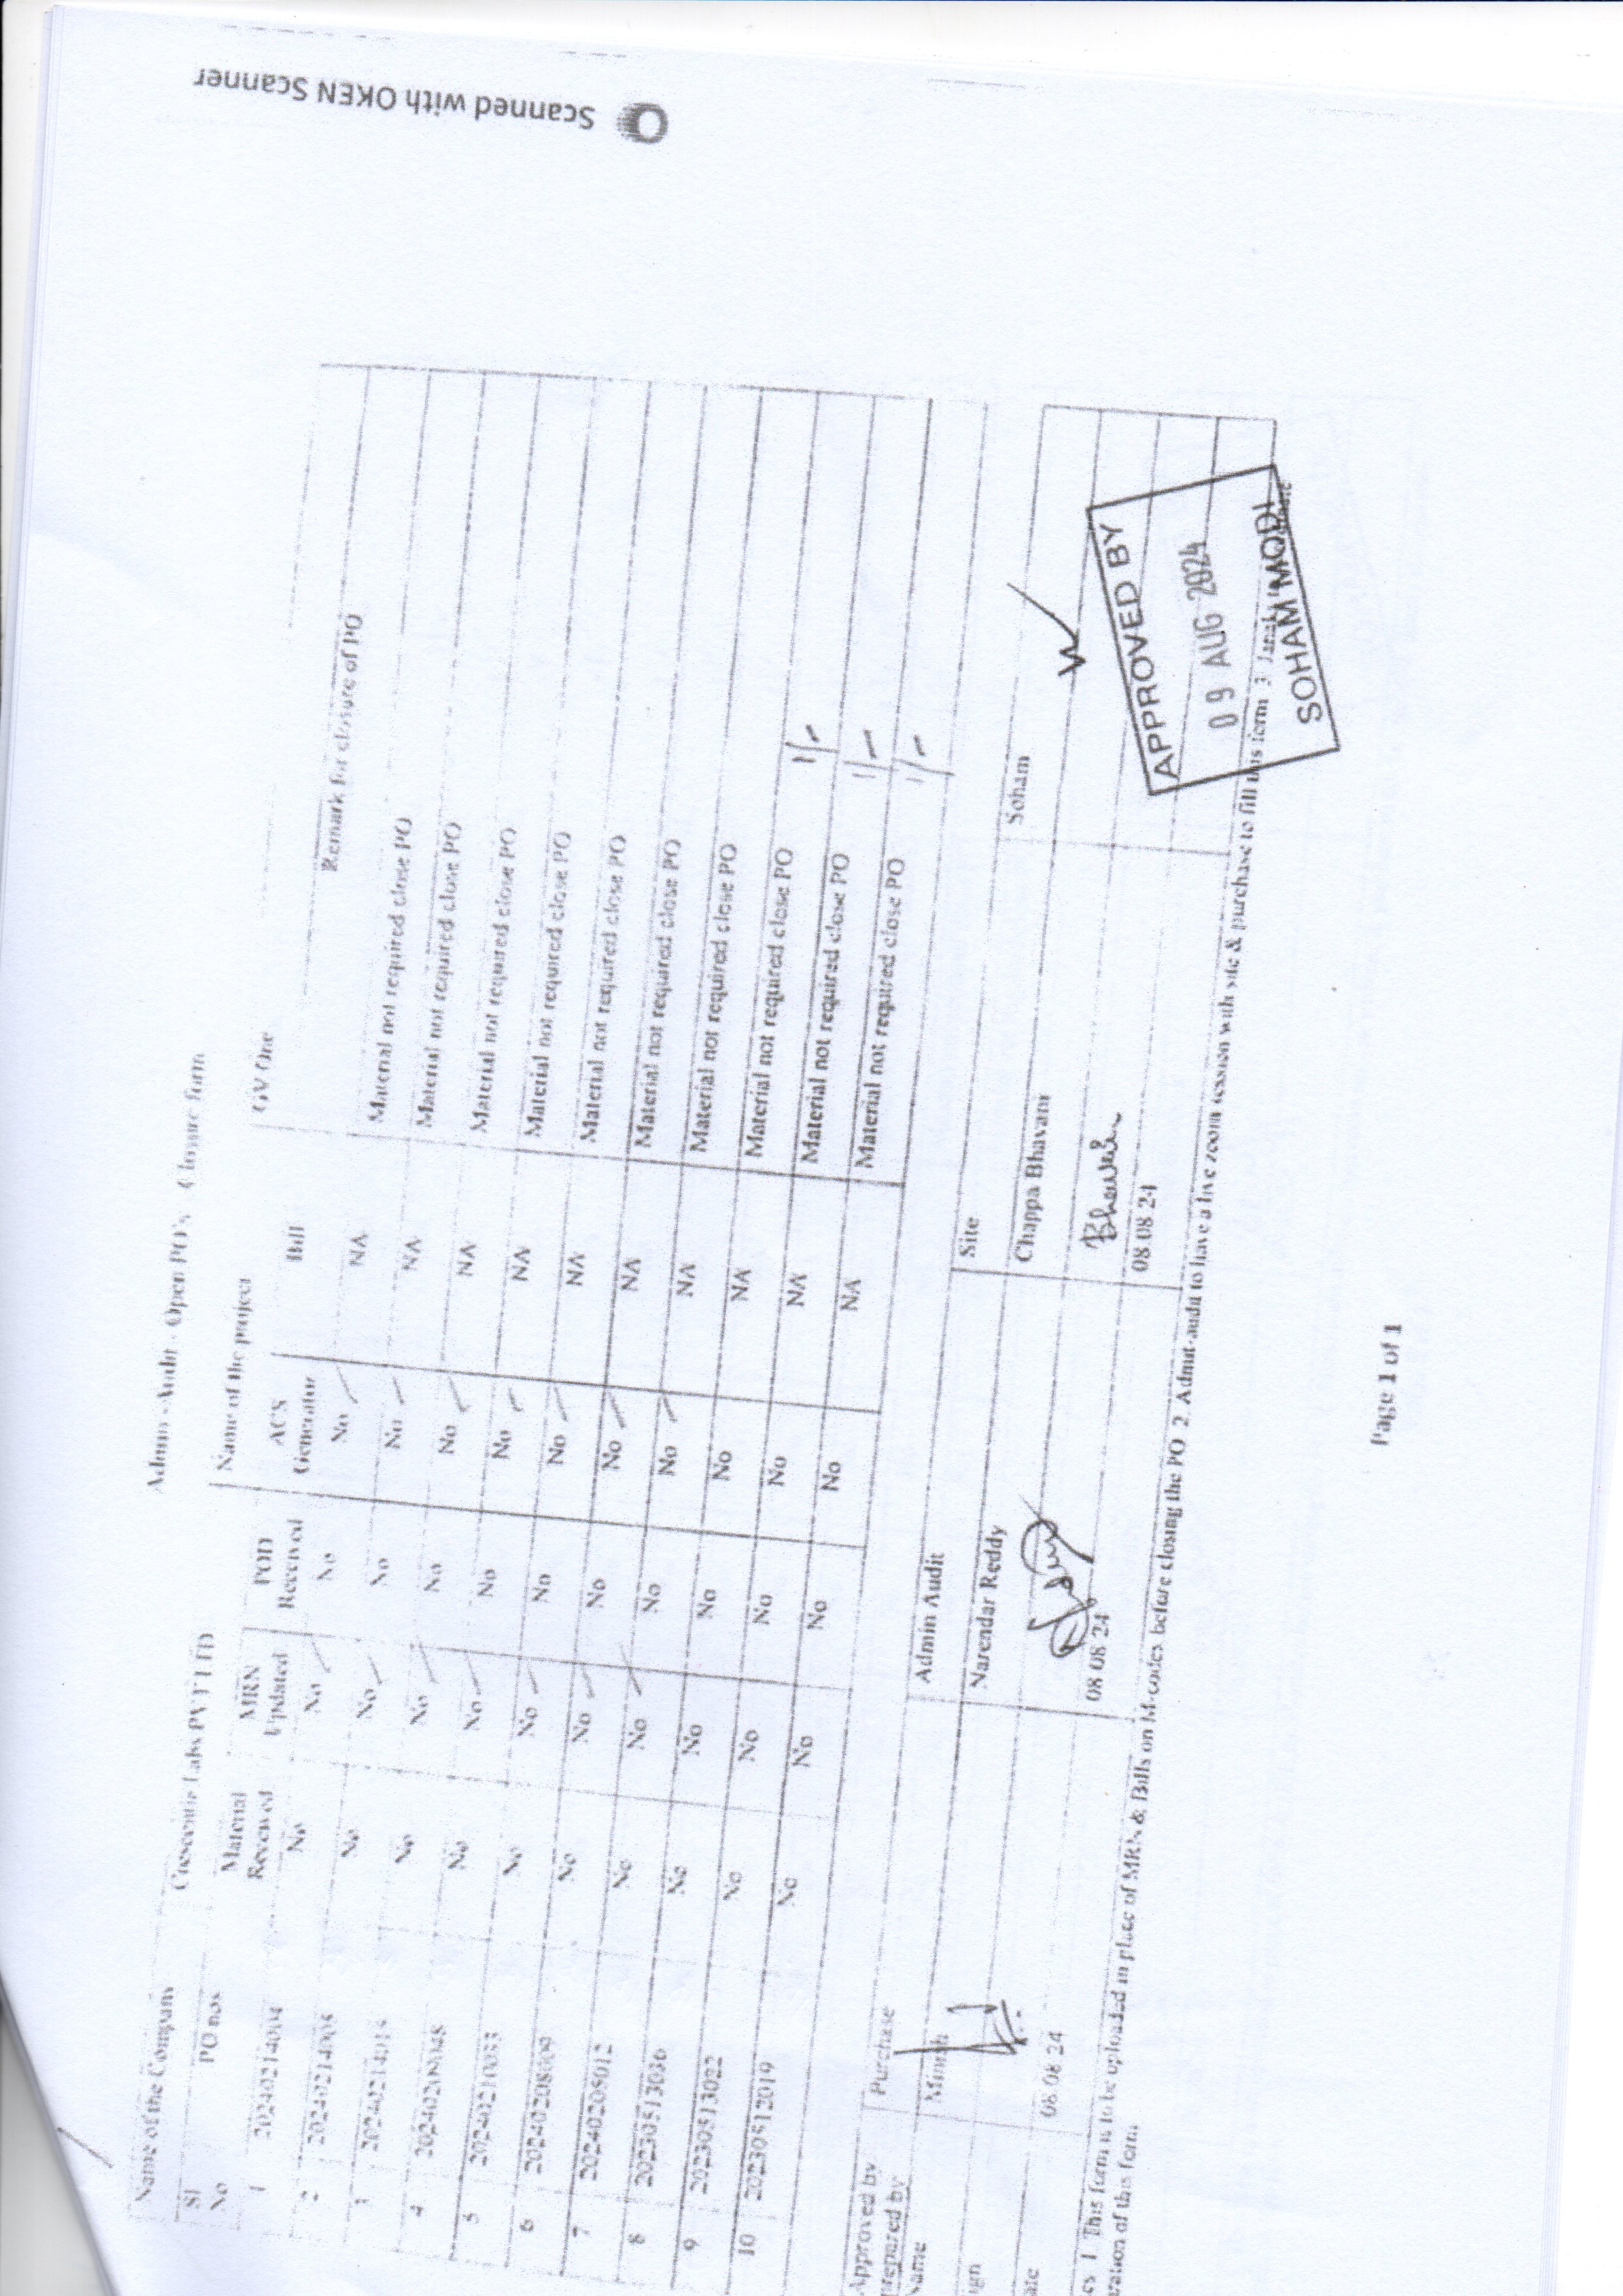 Admin - Audit - Open PO's Closure form
Name of the Company PVT LTD Name of the project GV One
Sl No PO nos Material Received MRN Updated POD Received ACS Generator Bill Remark for closure of PO
1 No No No No NA Material not required close PO
2 No No No No NA Material not required close PO
3 No No No No NA Material not required close PO
4 No No No No NA Material not required close PO
5 No No No No NA Material not required close PO
6 20240208009 No No No No NA Material not required close PO
7 20240205012 No No No No NA Material not required close PO
8 20230513036 No No No No NA Material not required close PO
9 20230513022 No No No No NA Material not required close PO
10 20230512019 No No No No NA Material not required close PO
Approved by Purchase Admin Audit Site Soham
Prepared by
Name Narendar Reddy Chappa Bhavani
Bhavani
08 08 24 08 08 24 08 08 24
1 This form is to be uploaded in place of MRN & Bills on M-codes before closing the PO 2 Admin-audit to have a live zoom session with site & purchase to fill this form 3
of this form
APPROVED BY
09 AUG 2024
SOHAM MODI
Page 1 of 1
Scanned with OKEN Scanner